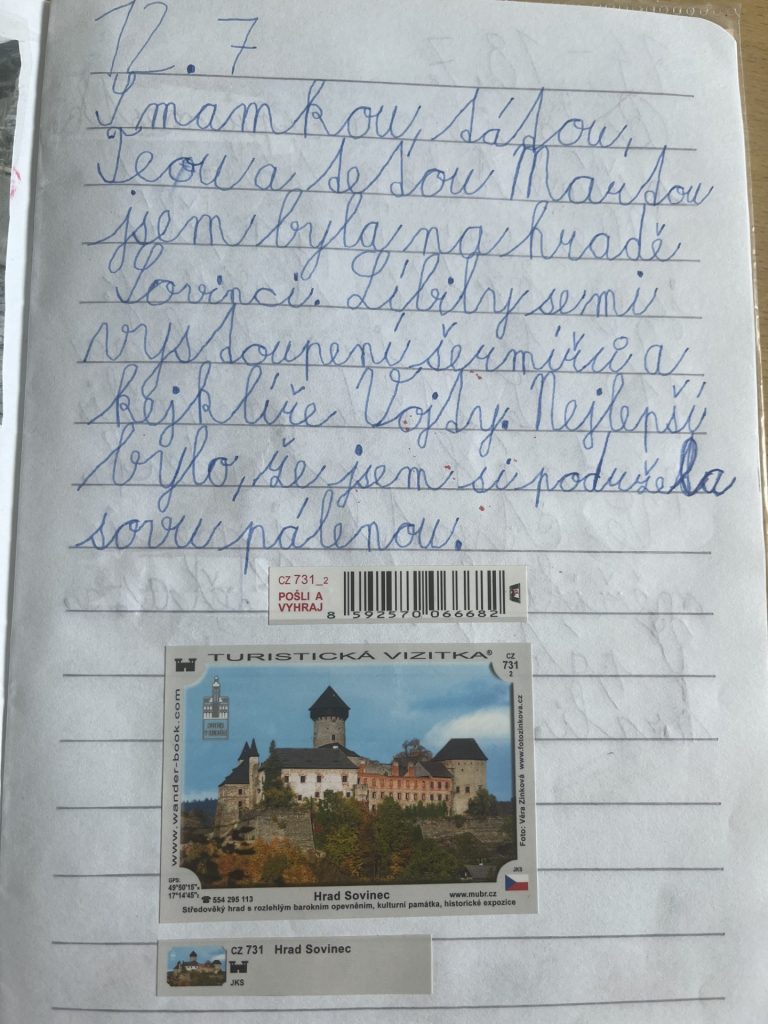 12.7
S mamkou, tátou,
Teou a tetou Martou
jsem byla na hradě
Sovinci. Líbily se mi
vystoupení šermířů a
kejklíře Vojty. Nejlepší
bylo, že jsem si podržela
sovu pálenou.
CZ 731_2
POŠLI A
VYHRAJ
8 592570 066682
TURISTICKÁ VIZITKA®
CZ
731
2
www.wander-book.com
Foto: Věra Zinková www.fotozinkova.cz
GPS:
49°50'15"N
17°14'45"E
☎ 554 295 113
Hrad Sovinec
www.mubr.cz
JKS
Středověký hrad s rozlehlým barokním opevněním, kulturní památka, historické expozice
CZ 731 Hrad Sovinec
JKS